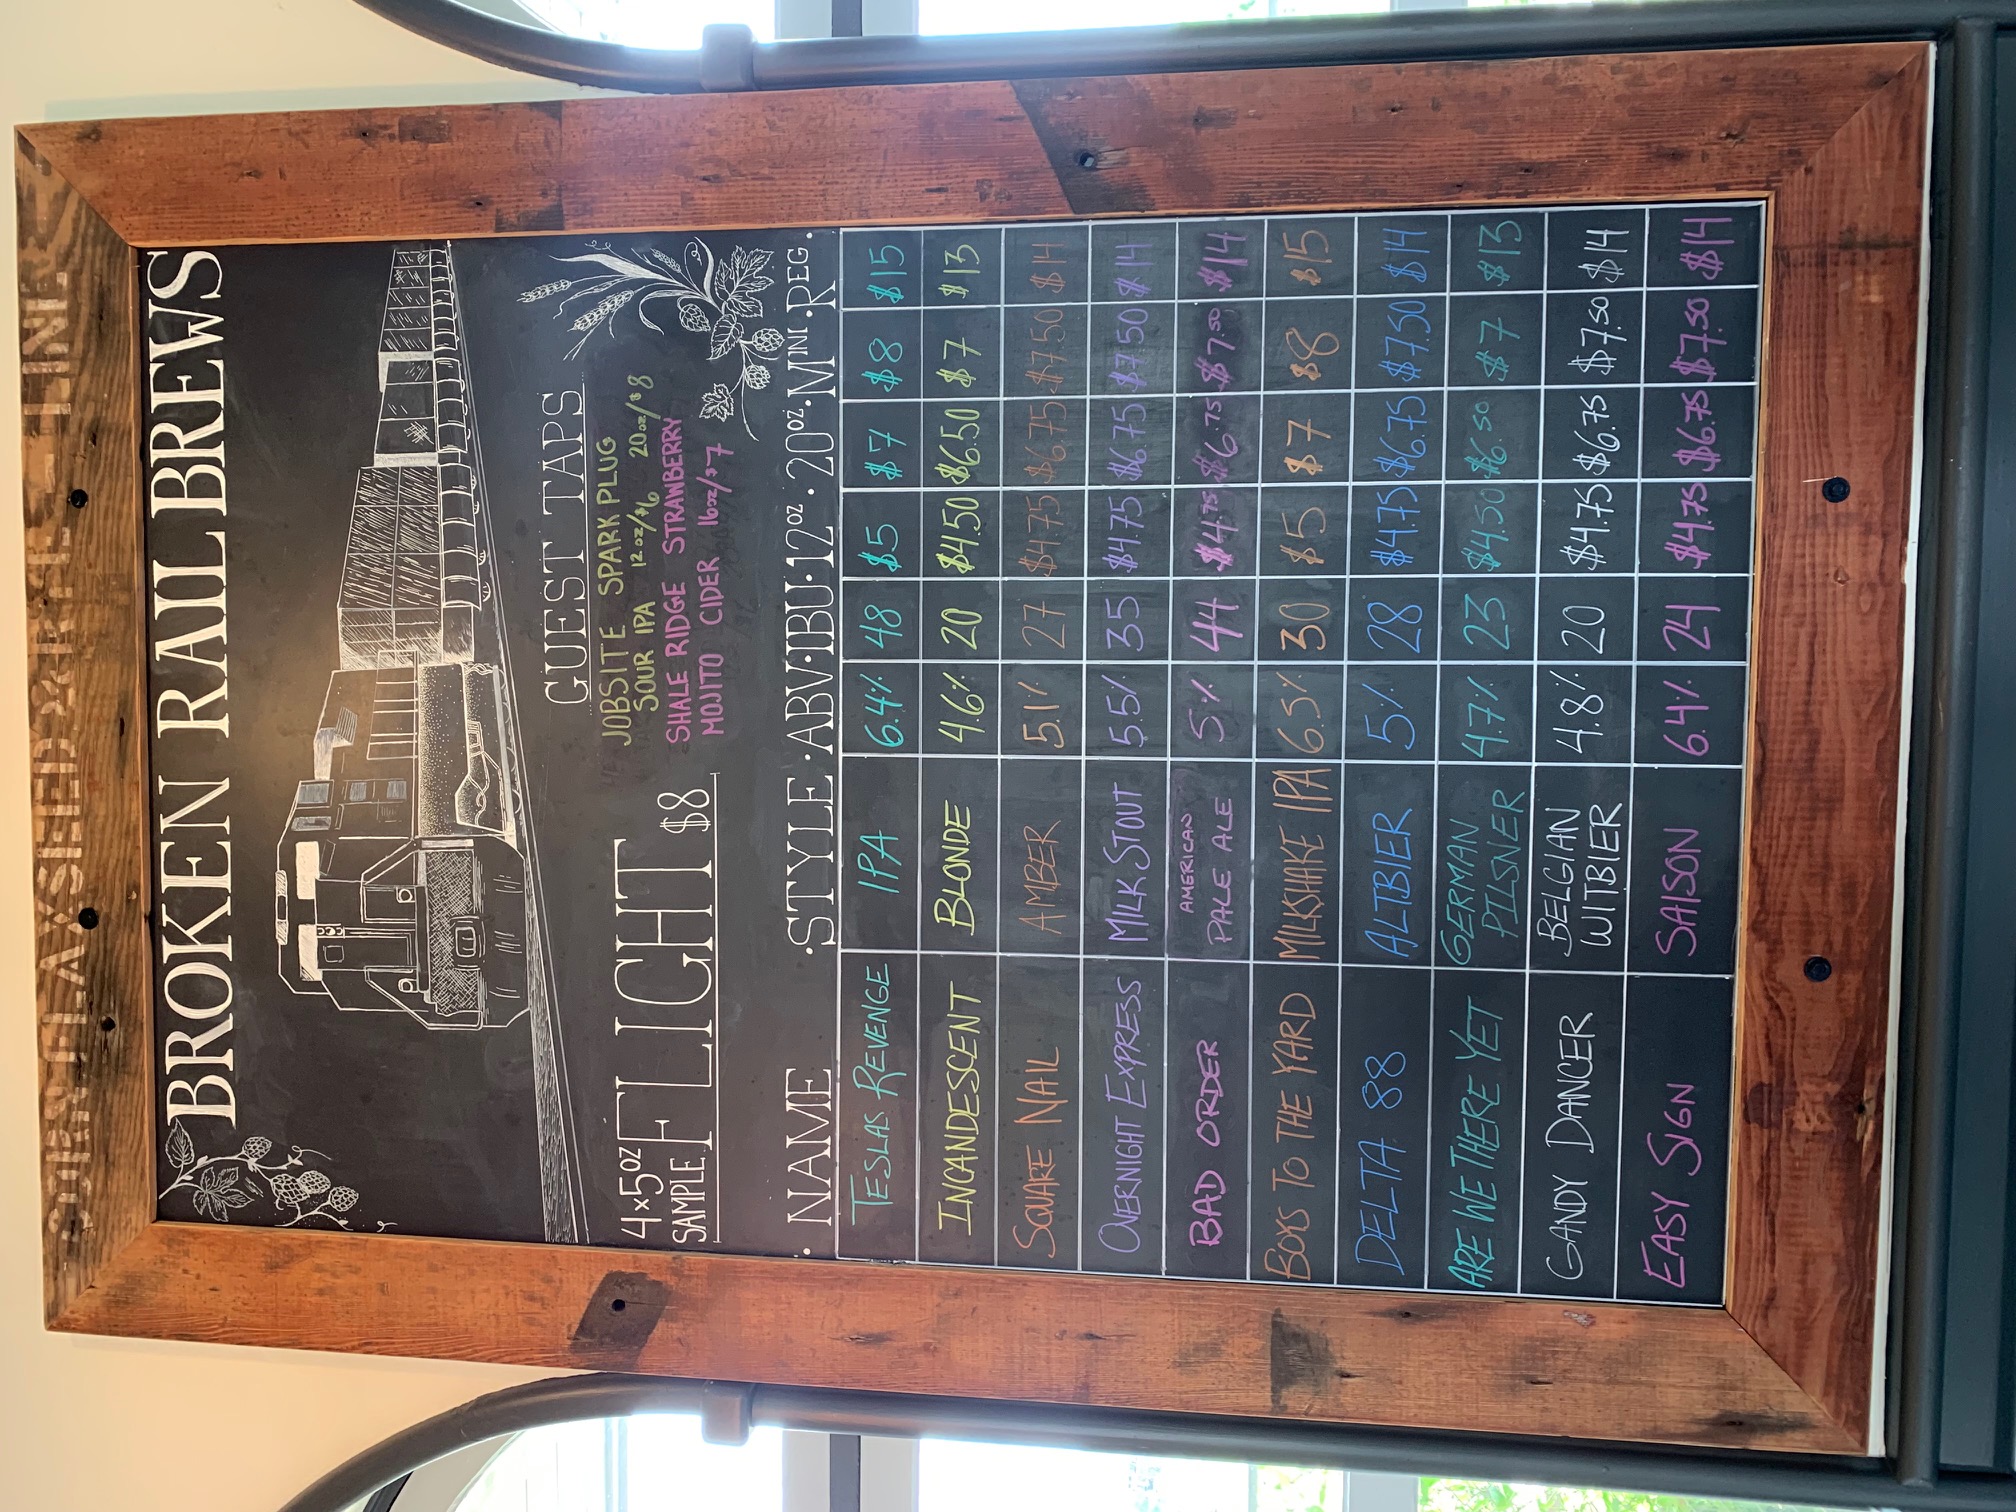 CORN FLAXSEED RYE - LINE
BROKEN RAIL BREWS
GUEST TAPS
JOBSITE SPARK PLUG
SOUR IPA 12oz/$6 20oz/$8
SHALE RIDGE STRAWBERRY
MOJITO CIDER 16oz/$7
4x5oz SAMPLE FLIGHT $8
· NAME · STYLE · ABV · IBU · 12oz · 20oz · MINI · REG ·
TESLAS REVENGE IPA 6.4% 48 $5 $7 $8 $15
INCANDESCENT BLONDE 4.6% 20 $4.50 $6.50 $7 $13
SQUARE NAIL AMBER 5.1% 27 $4.75 $6.75 $7.50 $14
OVERNIGHT EXPRESS MILK STOUT 5.5% 35 $4.75 $6.75 $7.50 $14
BAD ORDER AMERICAN PALE ALE 5% 44 $4.75 $6.75 $7.50 $14
BOYS TO THE YARD MILKSHAKE IPA 6.5% 30 $5 $7 $8 $15
DELTA 88 ALTBIER 5% 28 $4.75 $6.75 $7.50 $14
ARE WE THERE YET GERMAN PILSNER 4.7% 23 $4.50 $6.50 $7 $13
GANDY DANCER BELGIAN WITBIER 4.8% 20 $4.75 $6.75 $7.50 $14
EASY SIGN SAISON 6.4% 24 $4.75 $6.75 $7.50 $14